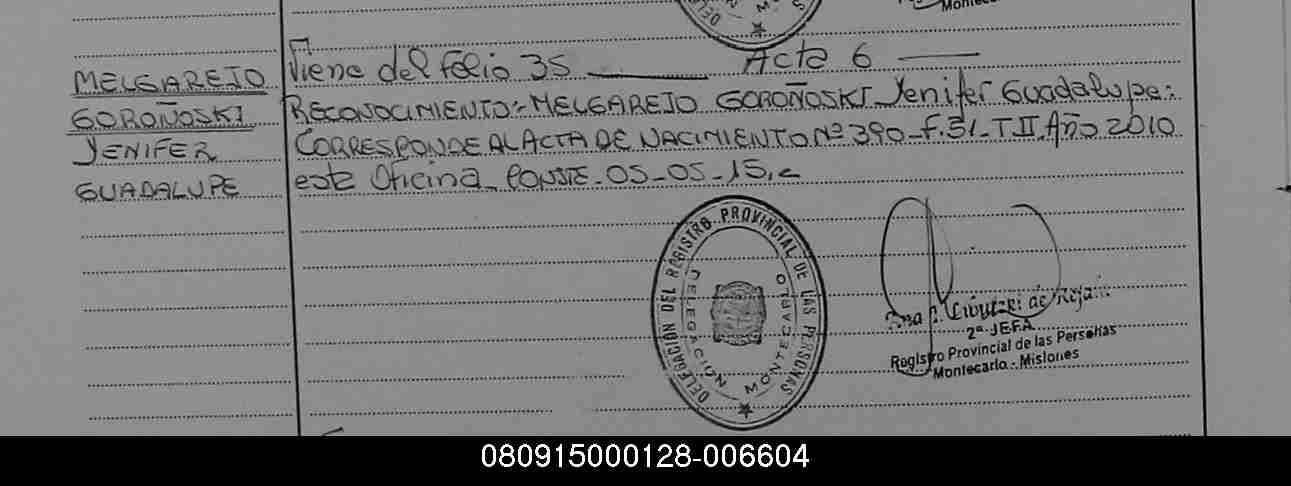 MELGAREJO
GOROÑOSKI
YENIFER
GUADALUPE
Viene del Folio 35 Acta 6
RECONOCIMIENTO:- MELGAREJO GOROÑOSKI Yenifer Guadalupe:
CORRESPONDE AL ACTA DE NACIMIENTO Nº 390-F.51-T II Año 2010
esta Oficina_CONSTE-05-05-15.-
DELEGACIÓN DEL REGISTRO PROVINCIAL DE LAS PERSONAS
DELEGACIÓN MONTECARLO
2ª JEFA
Registro Provincial de las Personas
Montecarlo - Misiones
080915000128-006604